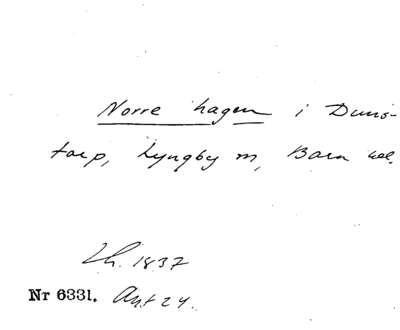 Norre hagen i Duns-
torp, Lyngby m, Bara
Lh. 1837
Nr 6331. Ant 24.